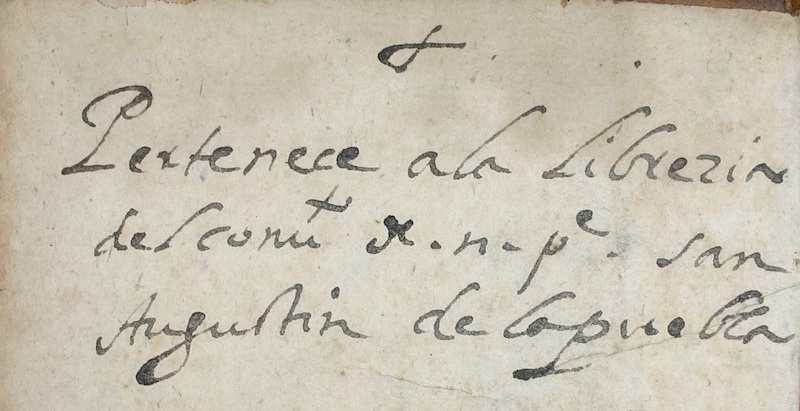 Pertenece a la Libreria
del conu^t d. n. p^e. san
Augustin de la puebla